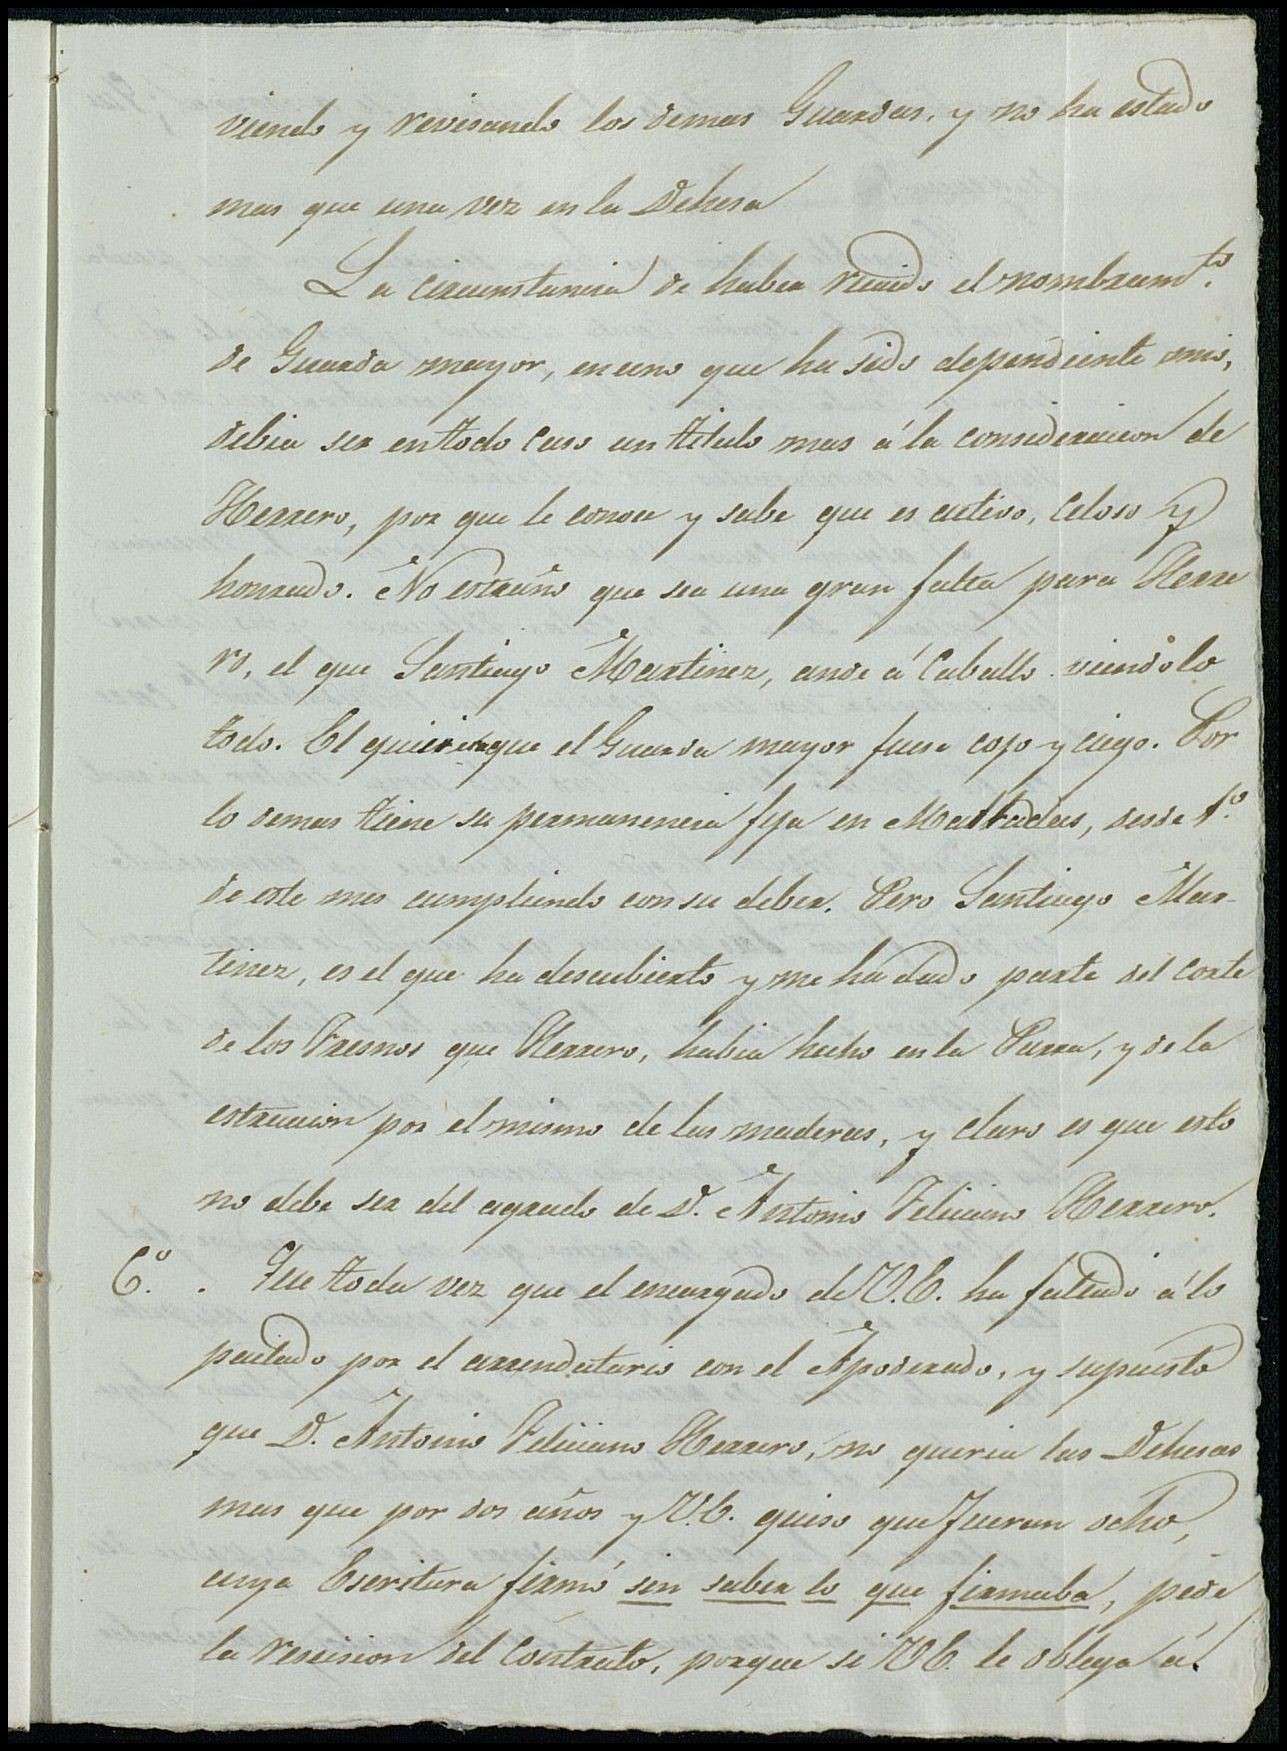 viendo y revisando los demas Guardas, y no ha estado
mas que una vez en la Dehesa
La circunstancia de haber recaido el nombramto.
de Guarda mayor, en uno que ha sido dependiente mio,
debia ser en todo caso un titulo mas á la consideracion de
Herrero, por que le conoce y sabe que es activo, celoso y
honrado. No estraño que sea una gran falta para Herre
ro, el que Santiago Martinez, ande á Caballo viendolo
todo. El quisiera que el Guarda mayor fuese cojo y ciego. Por
lo demas tiene su permanencia fija en Maltadas, desde 1.º
de este mes cumpliendo con su deber. Pero Santiago Mar-
tinez, es el que ha descubierto y me ha dado parte del corte
de los Fresnos que Herrero, habia hecho en la Parra, y de la
estraccion por el mismo de las maderas, y claro es que esto
no debe ser del agrado de D. Antonio Feliciano Herrero.
6.º . Que toda vez que el encargado de V.E. ha faltado á lo
pactado por el arrendatario con el Apoderado, y supuesto
que D. Antonio Feliciano Herrero, no queria las Dehesas
mas que por dos años y V.E. quiso que fueran ocho,
cuya Escritura firmó sin saber lo que firmaba, pide
la rescision del Contrato, porque si V.E. le obliga á